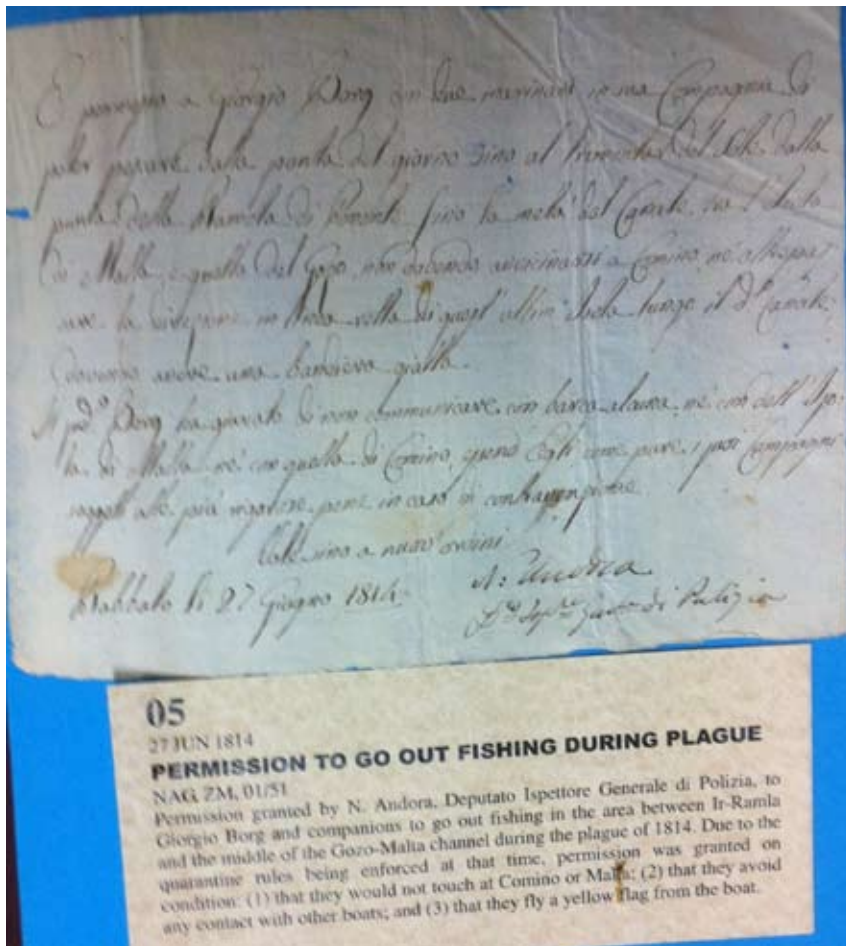 È permesso a Giorgio Borg con due marinari in sua Compagnia di
poter pescare dalla punta del giorno sino al tramontar del Sole dalla
punta della Ramla di Ponente fino la metà del Canale tra l'Isola
di Malta, e quella del Gozo, non dovendo avvicinarsi a Comino, né
la in quegl' Isola lungo il d.º Canale,
dovendo avere una bandiera gialla.
Il pred.º Borg ha giurato di non communicare con barca alcuna, né con dell' Iso-
la di Malta né con quella di Comino, Egli come pure i suoi Compagni
alle più rigorose pene in caso di contravenzione
sino a nuov' ordini
Rabbato li 27 Giugno 1814.
N: Andora
di Polizia
05
27 JUN 1814
PERMISSION TO GO OUT FISHING DURING PLAGUE
NAG, ZM, 01/51
Permission granted by N. Andora, Deputato Ispettore Generale di Polizia, to
Giorgio Borg and companions to go out fishing in the area between Ir-Ramla
and the middle of the Gozo-Malta channel during the plague of 1814. Due to the
quarantine rules being enforced at that time, permission was granted on
condition: (1) that they would not touch at Comino or Malta; (2) that they avoid
any contact with other boats; and (3) that they fly a yellow flag from the boat.